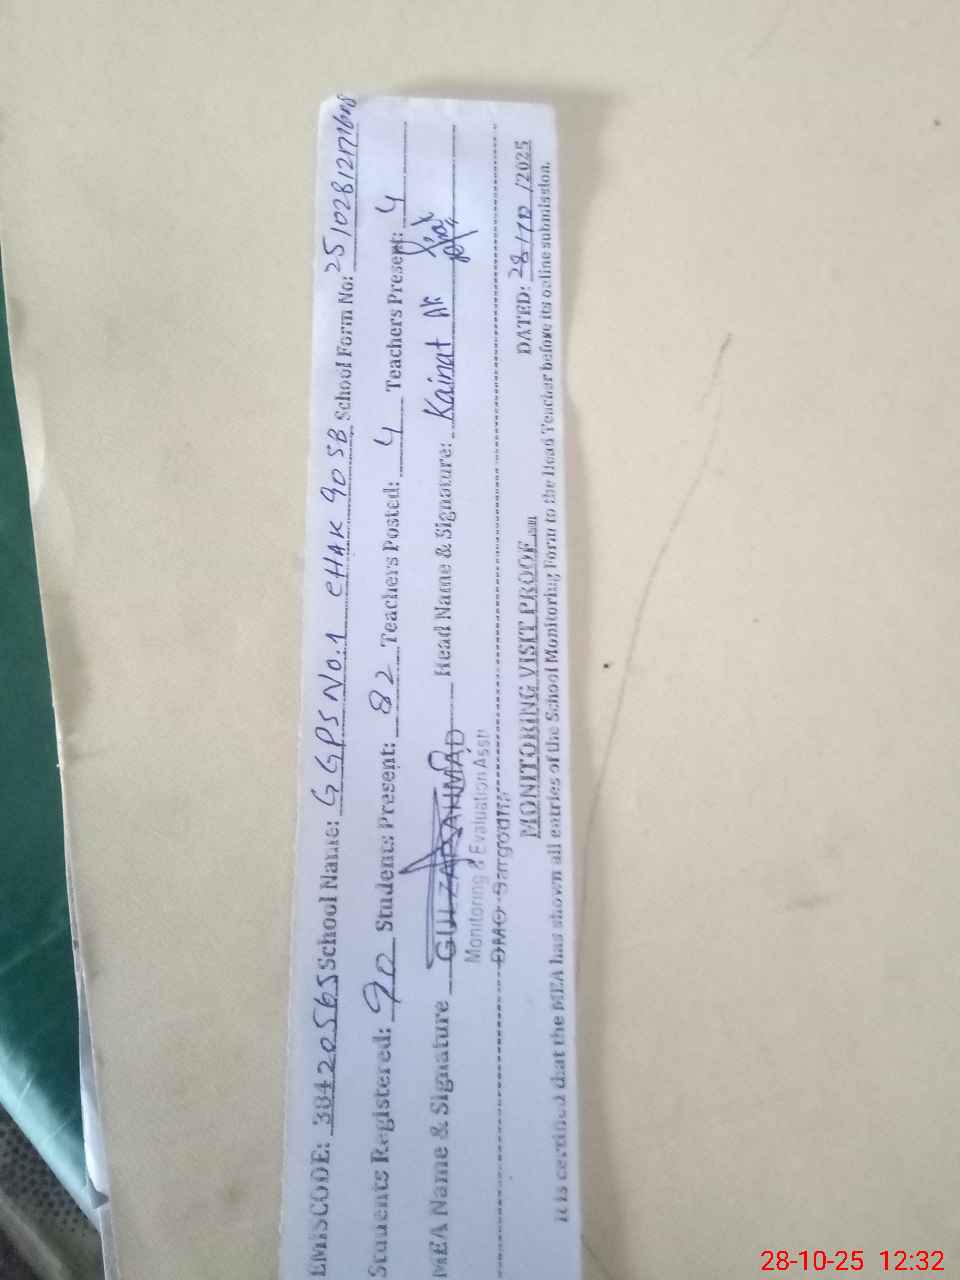 EMISCODE: 38420565 School Name: GGPS No.1 CHAK 90 SB School Form No:
Students Registered: 90 Students Present: 82 Teachers Posted: 4 Teachers Present: 4
MEA Name & Signature GULZAR AHMAD Head Name & Signature: Kainat
Monitoring & Evaluation Asstt
DMO Sargodha
MONITORING VISIT PROOF DATED: 28/10/2025
It is certified that the MEA has shown all entries of the School Monitoring Form to the Head Teacher before its online submission.
28-10-25 12:32